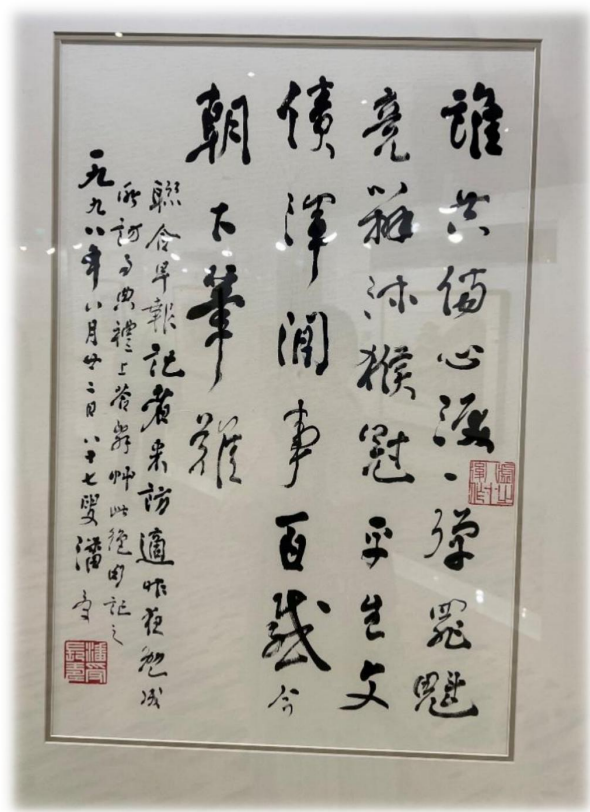 誰共傷心淚一彈罪魁
竟辭沐猴冠平生文
債渾閒事百感今
朝下筆難
聯合早報記者來訪適昨夜勉成
典禮上答辭艸此絕句記之
一九九八年八月廿二日八十七叟潘受
潘受